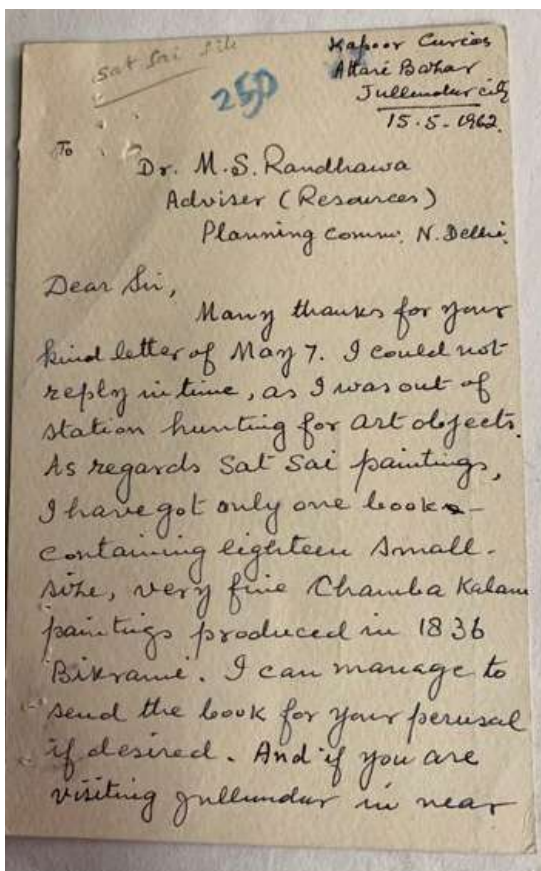 Sat Sai file
250
Kapoor Curios
Attari Bazar
Jullundur city
15.5-1962.
To
Dr. M.S. Randhawa
Adviser (Resources)
Planning Comm. N. Delhi.
Dear Sir,
Many thanks for your
kind letter of May 7. I could not
reply in time, as I was out of
station hunting for art objects.
As regards Sat Sai paintings,
I have got only one book -
containing eighteen small-
size, very fine Chamba Kalam
paintings produced in 1836
Bikrami. I can manage to
send the book for your perusal
if desired. And if you are
visiting Jullundur in near